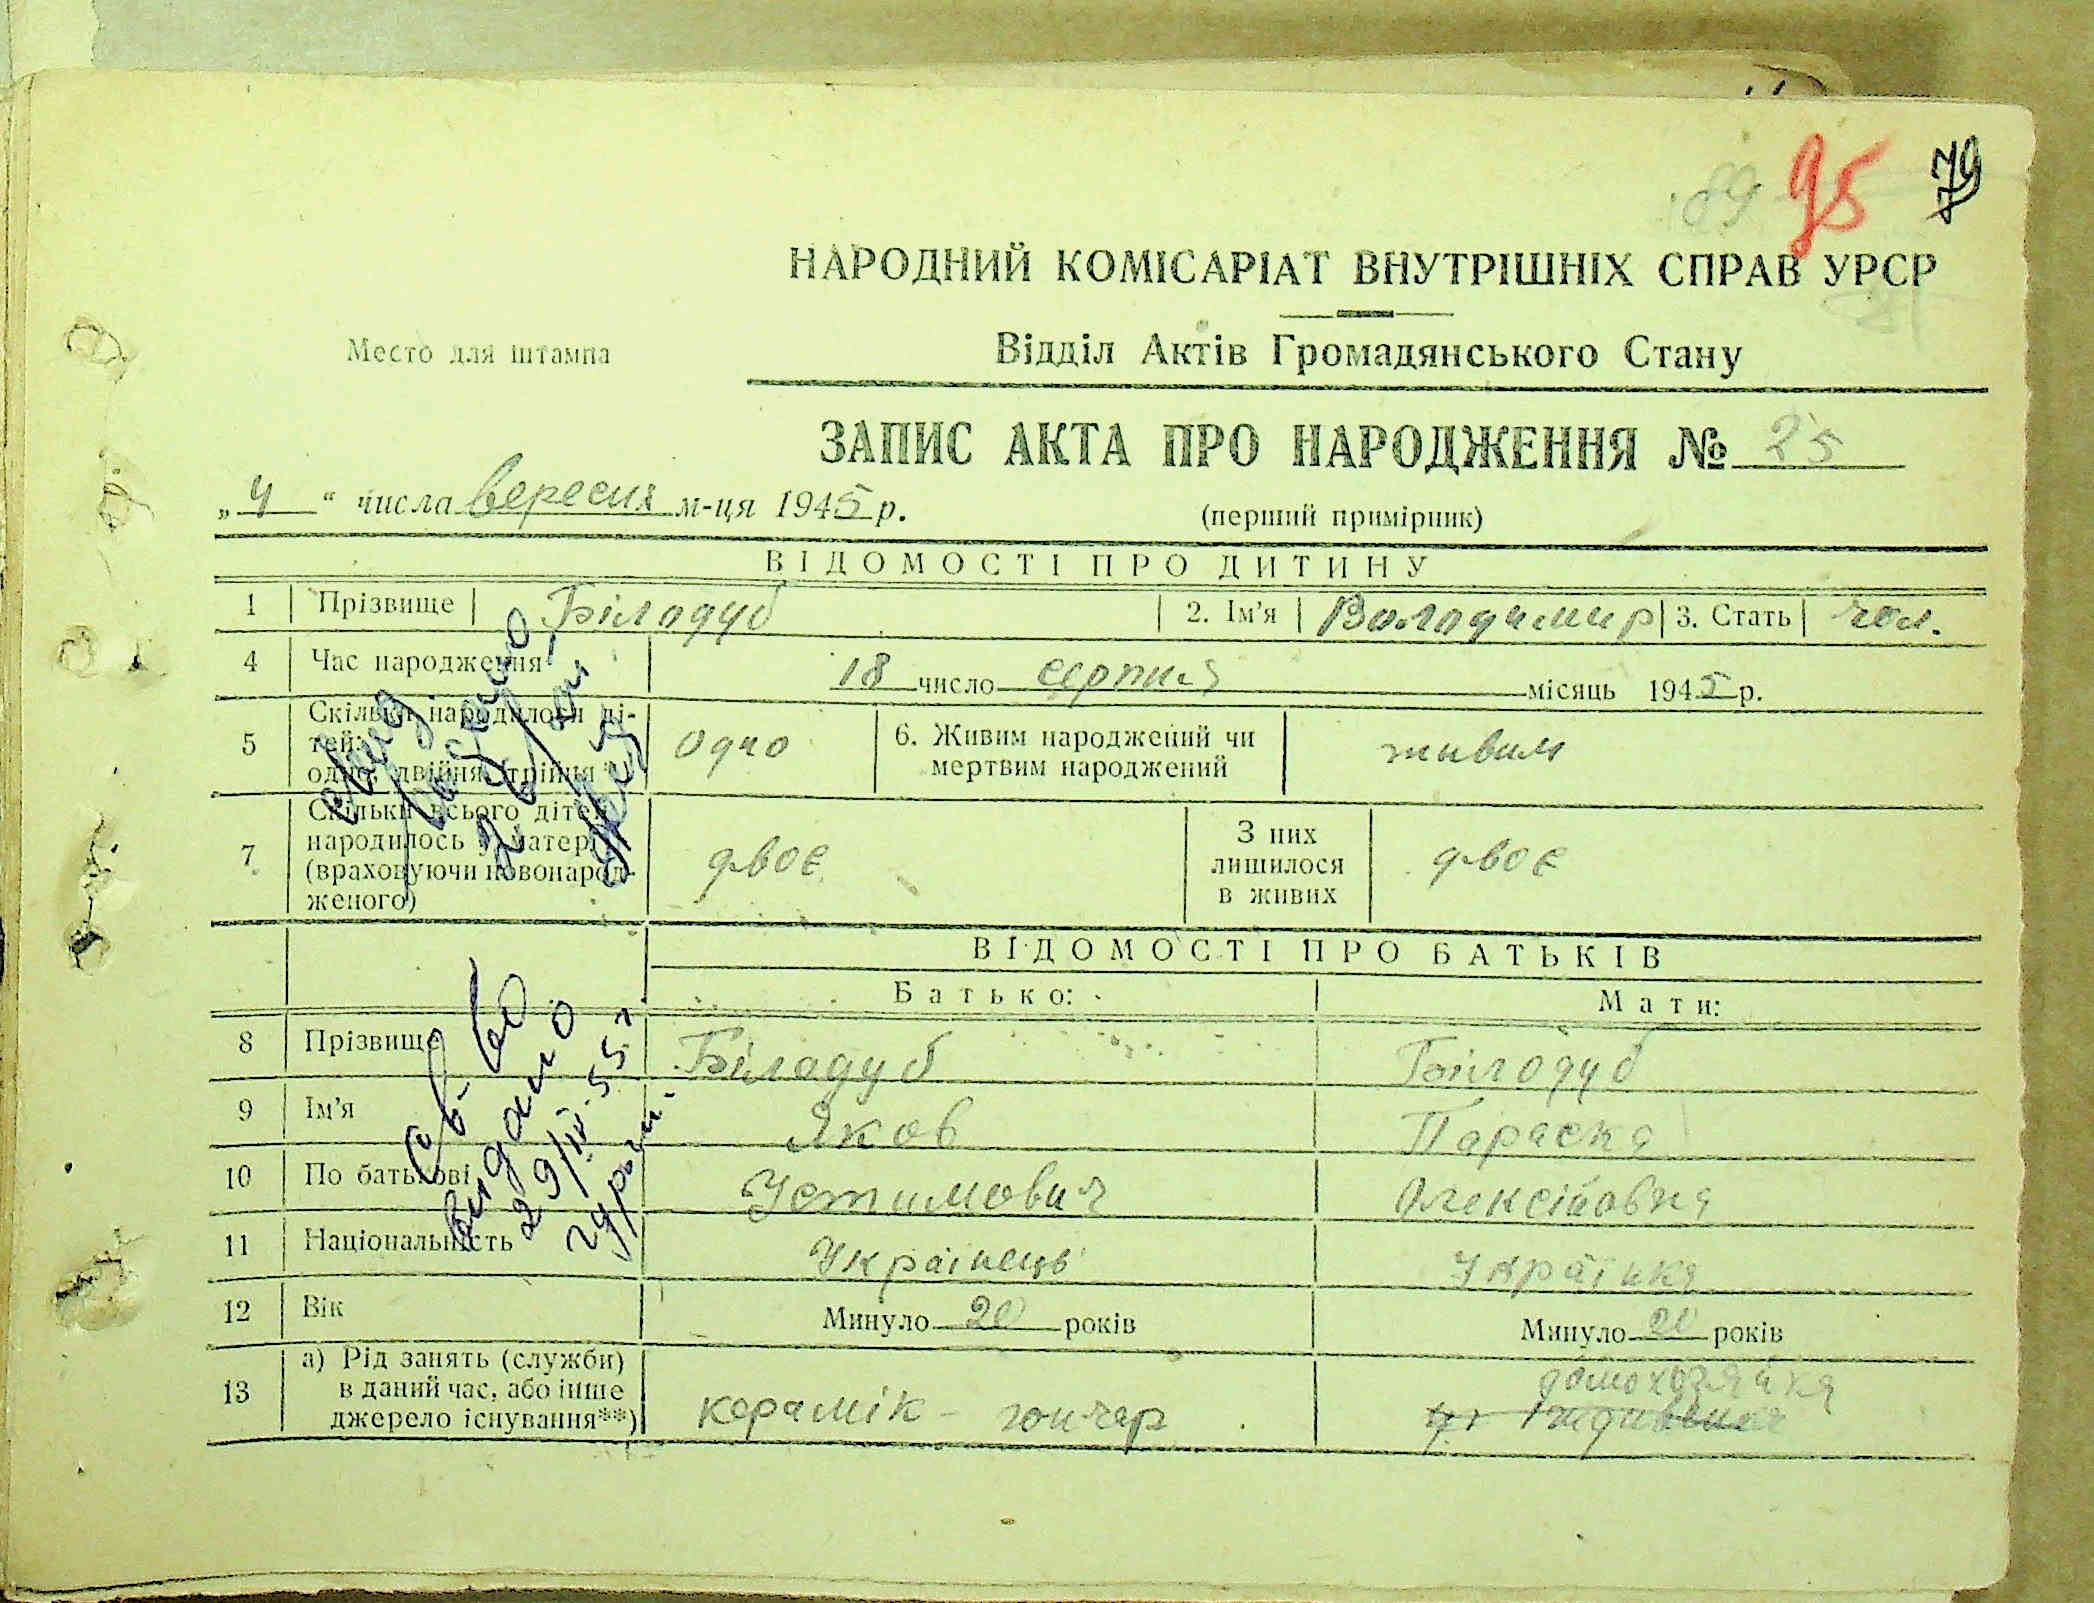 89 95 79
НАРОДНИЙ КОМІСАРІАТ ВНУТРІШНІХ СПРАВ УРСР
Место для штампа
Відділ Актів Громадянського Стану
ЗАПИС АКТА ПРО НАРОДЖЕННЯ № 25
„ 4 “ числа вересня м-ця 1945 р.
(перший примірник)
ВІДОМОСТІ ПРО ДИТИНУ
1 Прізвище Білодуб 2. Ім'я Володимир 3. Стать чол.
4 Час народження 18 число серпня місяць 1945 р.
5 Скільки народилося ді-
тей:
одно, двійня, трійня*)
одно
6. Живим народжений чи
мертвим народжений
живим
7 Скільки всього дітей
народилось у матері
(враховуючи новонарод-
женого)
двоє
З них
лишилося
в живих
двоє
ВІДОМОСТІ ПРО БАТЬКІВ
Батько: Мати:
8 Прізвище Білодуб Білодуб
9 Ім'я Яков Параска
10 По батькові Устимович Олексіївна
11 Національність Українець Українка
12 Вік Минуло 20 років Минуло 20 років
13 а) Рід занять (служби)
в даний час, або інше
джерело існування**)
керамік - гончар
домохозяйка
св-во
видано
29/IV-55 г.